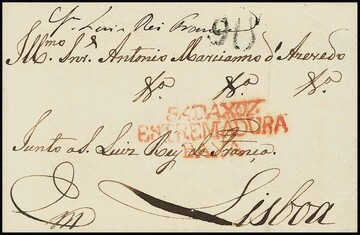 Sr Luis Rei França
90
Illmo Snr Antonio Marcianno d'Azevedo
Va. Va. Va.
BADAXOZ
ESTREMADURA
BAXA
Junto a S. Luiz Rey de França.
Lisboa